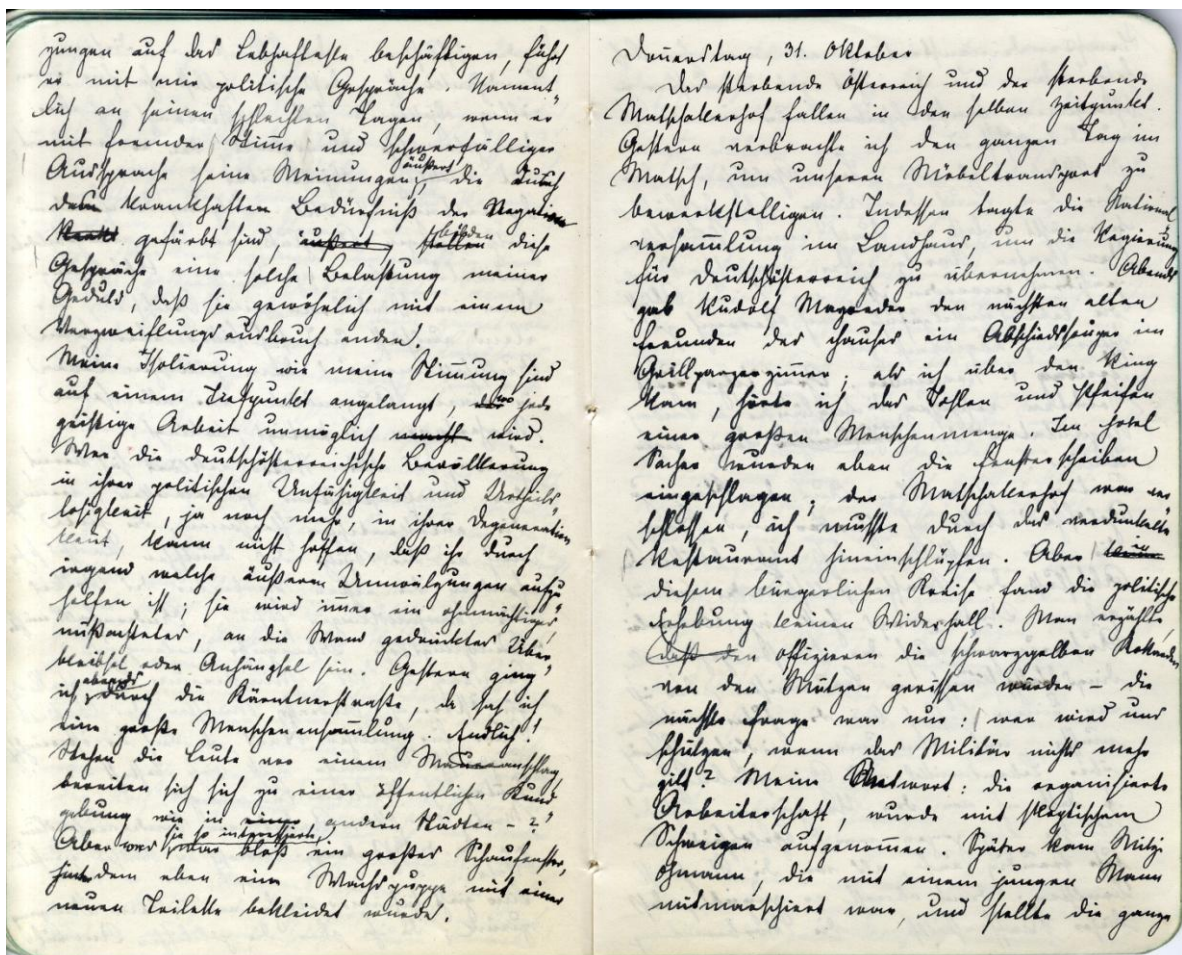 gungen auf das Lebhafteste beschäftigen, führt
er mit mir politische Gespräche. Nament-
lich an seinen schlechten Tagen, wenn er
mit fremder Stimme und schwerfälliger
Aussprache seine Meinungen äußert, die durch
das krankhafte Bedürfniß der Negation
gefärbt sind, äußert, bilden diese
Gespräche eine solche Belastung meiner
Geduld, daß sie gewöhnlich mit einem
Verzweiflungsausbruch enden.
Meine Isolierung wie meine Stimmung sind
auf einem Tiefpunkt angelangt, wo jede
geistige Arbeit unmöglich macht wird.
Wer die deutschösterreichische Bevölkerung
in ihrer politischen Unfähigkeit und Urtheils-
losigkeit, ja noch mehr, in ihrer Degeneration
kennt, kann nicht hoffen, daß ihr durch
irgend welche äußeren Umwälzungen aufzu-
helfen ist; sie wird immer ein ohnmächtiger,
mißachteter, an die Wand gedrückter Über-
bleibsel oder Anhängsel sein. Gestern ging
ich abends durch die Kärntnerstraße, da sah ich
eine große Menschenansammlung. Endlich!
Stehen die Leute vor einem Maueranschlag,
bereiten sich sich zu einer öffentlichen Kund-
gebung wie in andern Städten – ?
Aber was sie so interessierte, war bloß ein großer Schaufenster,
in dem eben eine Wachspuppe mit einer
neuen Toilette bekleidet wurde.
Donnerstag, 31. Oktober
Das sterbende Österreich und der sterbende
Matschakerhof fallen in den selben Zeitpunkt.
Gestern verbrachte ich den ganzen Tag im
Matsch, um unseren Möbeltransport zu
bewerkstelligen. Indessen tagte die National-
versammlung im Landhaus, um die Regierung
für Deutschösterreich zu übernehmen. Abends
gab Rudolf Mayreder den nächsten alten
Freunden des Hauses ein Abschiedssouper im
Grillparzerzimmer; als ich über den Ring
kam, hörte ich das Johlen und Pfeifen
einer großen Menschenmenge. Im Hotel
Sacher wurden eben die Fensterscheiben
eingeschlagen; der Matschakerhof war ver-
schlossen, ich mußte durch das verdunkelte
Restaurant hineinschlüpfen. Aber in
diesem bürgerlichen Kreise fand die politische
Erhebung keinen Widerhall. Man erzählte,
daß den Offizieren die schwarzgelben Kokarden
von den Mützen gerissen wurden – die
nächste Frage war nur: wer wird uns
schützen, wenn das Militär nichts mehr
gilt? Meine Antwort: die organisierte
Arbeiterschaft, wurde mit skeptischem
Schweigen aufgenommen. Später kam Mitzi
Ohmann, die mit einem jungen Mann
mitmarschiert war, und stellte die ganze